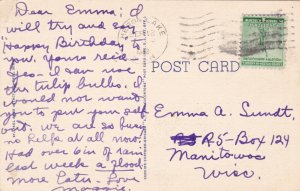 Dear Emma; I
will try and say
"Happy Birthday" to
you. Yours recid-
Yes - I can use
the tulip bulbs. I
would not want
you to put your self
out. We are so busy
no Relfe at all now.
Had over 6 in of rain
last week a flood
more Later - Love
LAKE
POST CARD
Emma A. Sundt,
R5-Box 124
Manitowoc
Wisc.